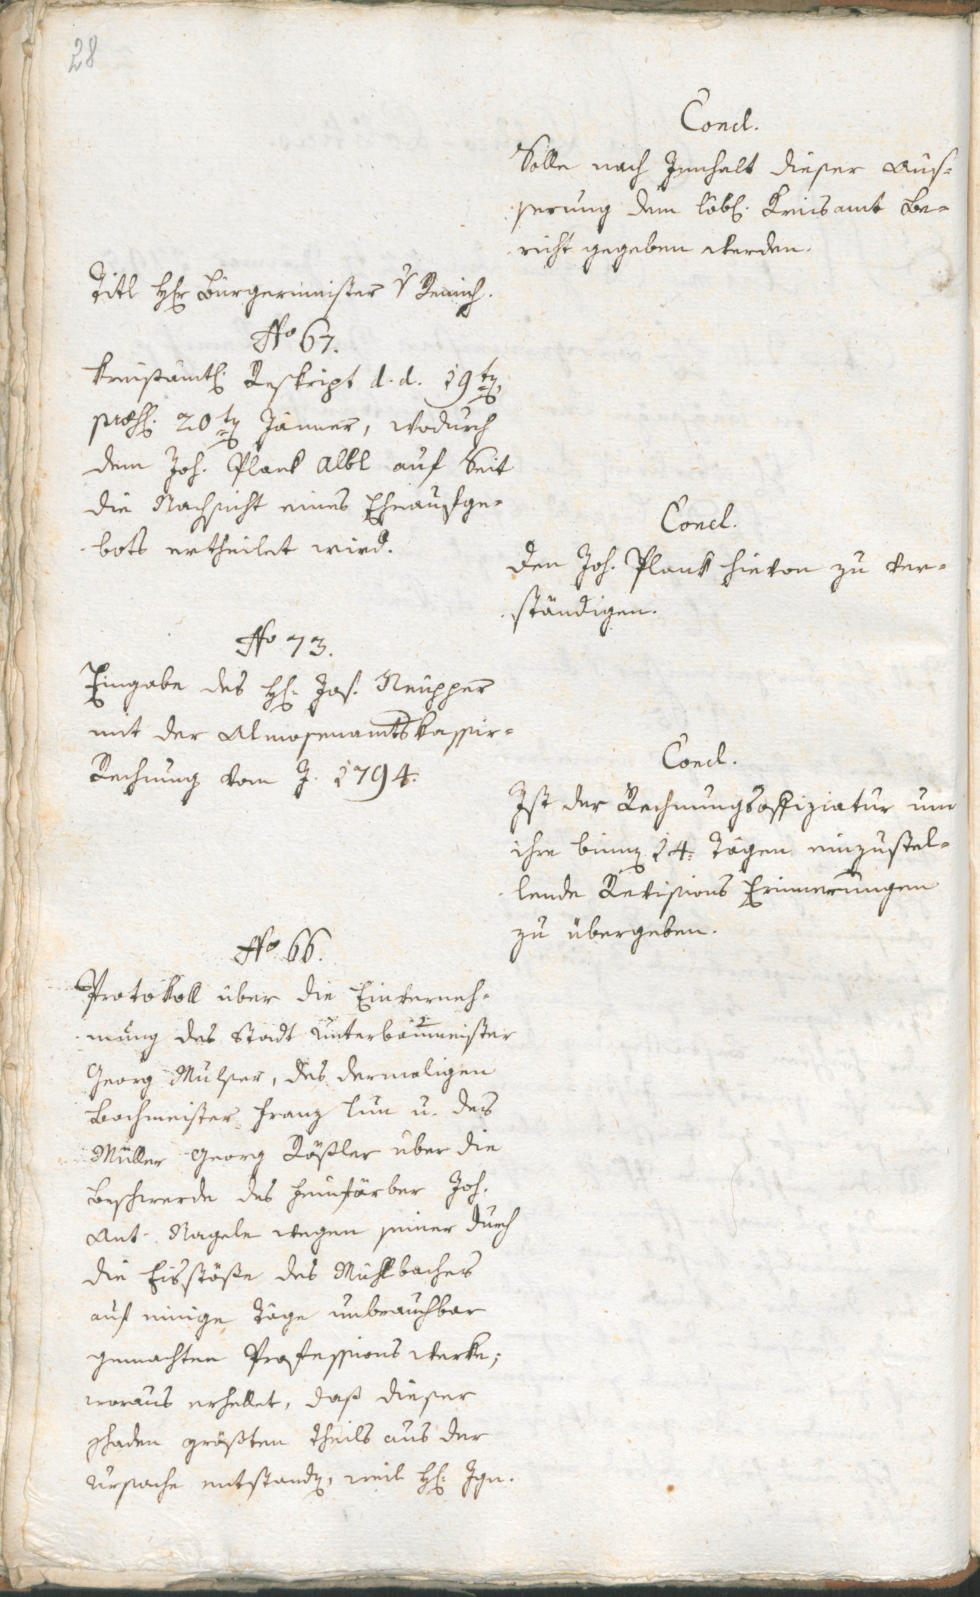 28
Concl.
Solle nach Innhalt dieser Aüs-
serung dem löbl. Kreisamt Be-
richt gegeben werden.
Titl Hr Bürgermeister v
No 67.
Kreisämtl. Reskript d. d. 19ten
praes. 20ten Jänner, wodurch
dem Joh. Plank Albl auf Seit
die Nachsicht eines Eheaufge-
bots ertheilet wird.
Concl.
Den Joh. Plank hievon zu ver-
ständigen.
No 73.
Eingabe des H. Jos. Neupper
mit der Almosenamtskassir-
Rechnung vom J. 1794.
Concl.
Ist der Rechnungsoffiziatur um
ihre binnen 14 Tägen einzustel-
lende Revisions Erinnerungen
zu übergeben.
No 66.
Protokoll über die Einverneh-
mung des Stadt Unterbaumeister
Georg Mulser, des dermaligen
Bachmeister Franz Lun u. des
Müller Georg Rößler über die
Beschwerde des Joh.
Ant. Nagele wegen seiner durch
die Eisstöße des Mühlbaches
auf einige Täge unbrauchbar
gemachten Professions Werke;
woraus erhellet, daß dieser
Schaden größten Theils aus der
Ursache entstanden, weil H. Ign.